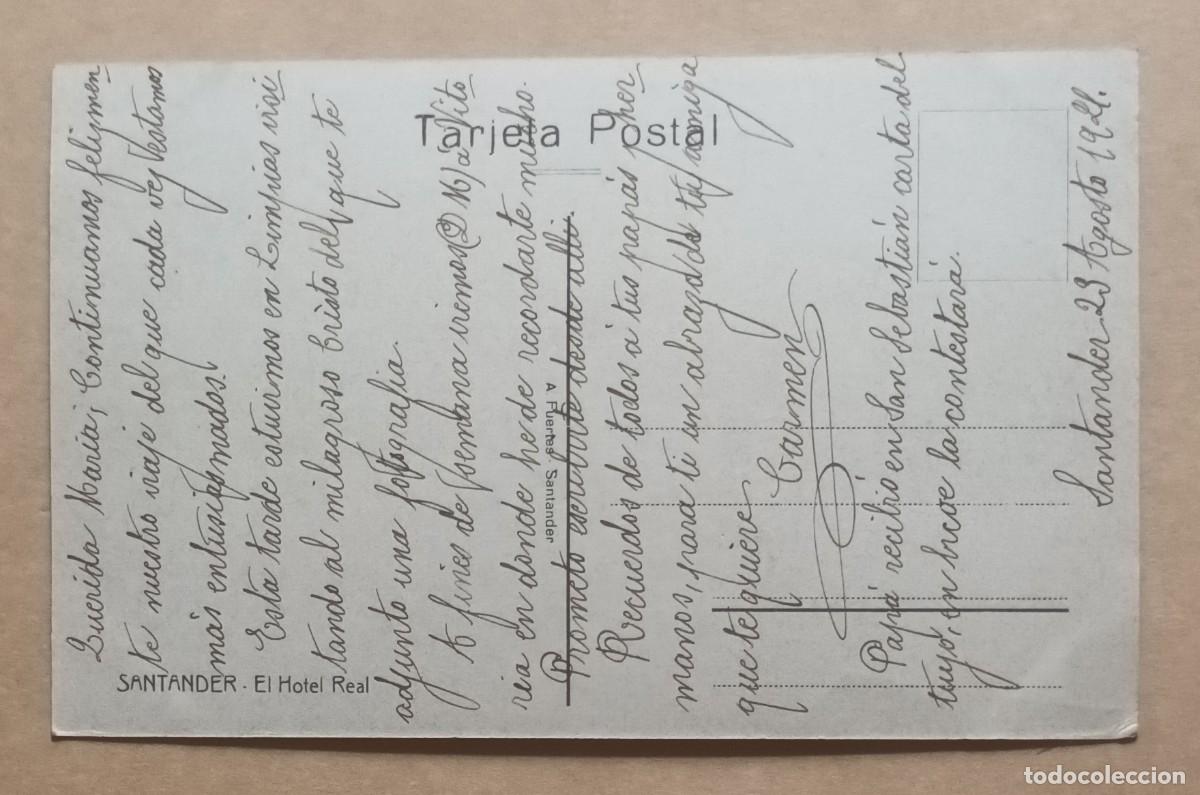 Tarjeta Postal
SANTANDER - El Hotel Real
A. Fuertes, Santander
Querida María; Continuamos felizmen
te nuestro viaje del que cada vez estamos
más entusiasmados.
Esta tarde estuvimos en Limpias visi
tando al milagroso Cristo del que te
adjunto una fotografia.
A fines de semana iremos (D. M.) a Vito
ria en donde he de recordarte mucho.
Prometo escribirte desde alli.
Recuerdos de todos a tus papás y her
manos, para ti un abrazo de tu amiga
que te quiere
Carmen
Papá recibió en San Sebastián carta del
tuyo, en breve la contestará.
Santander 23 Agosto 1922.
todocoleccion